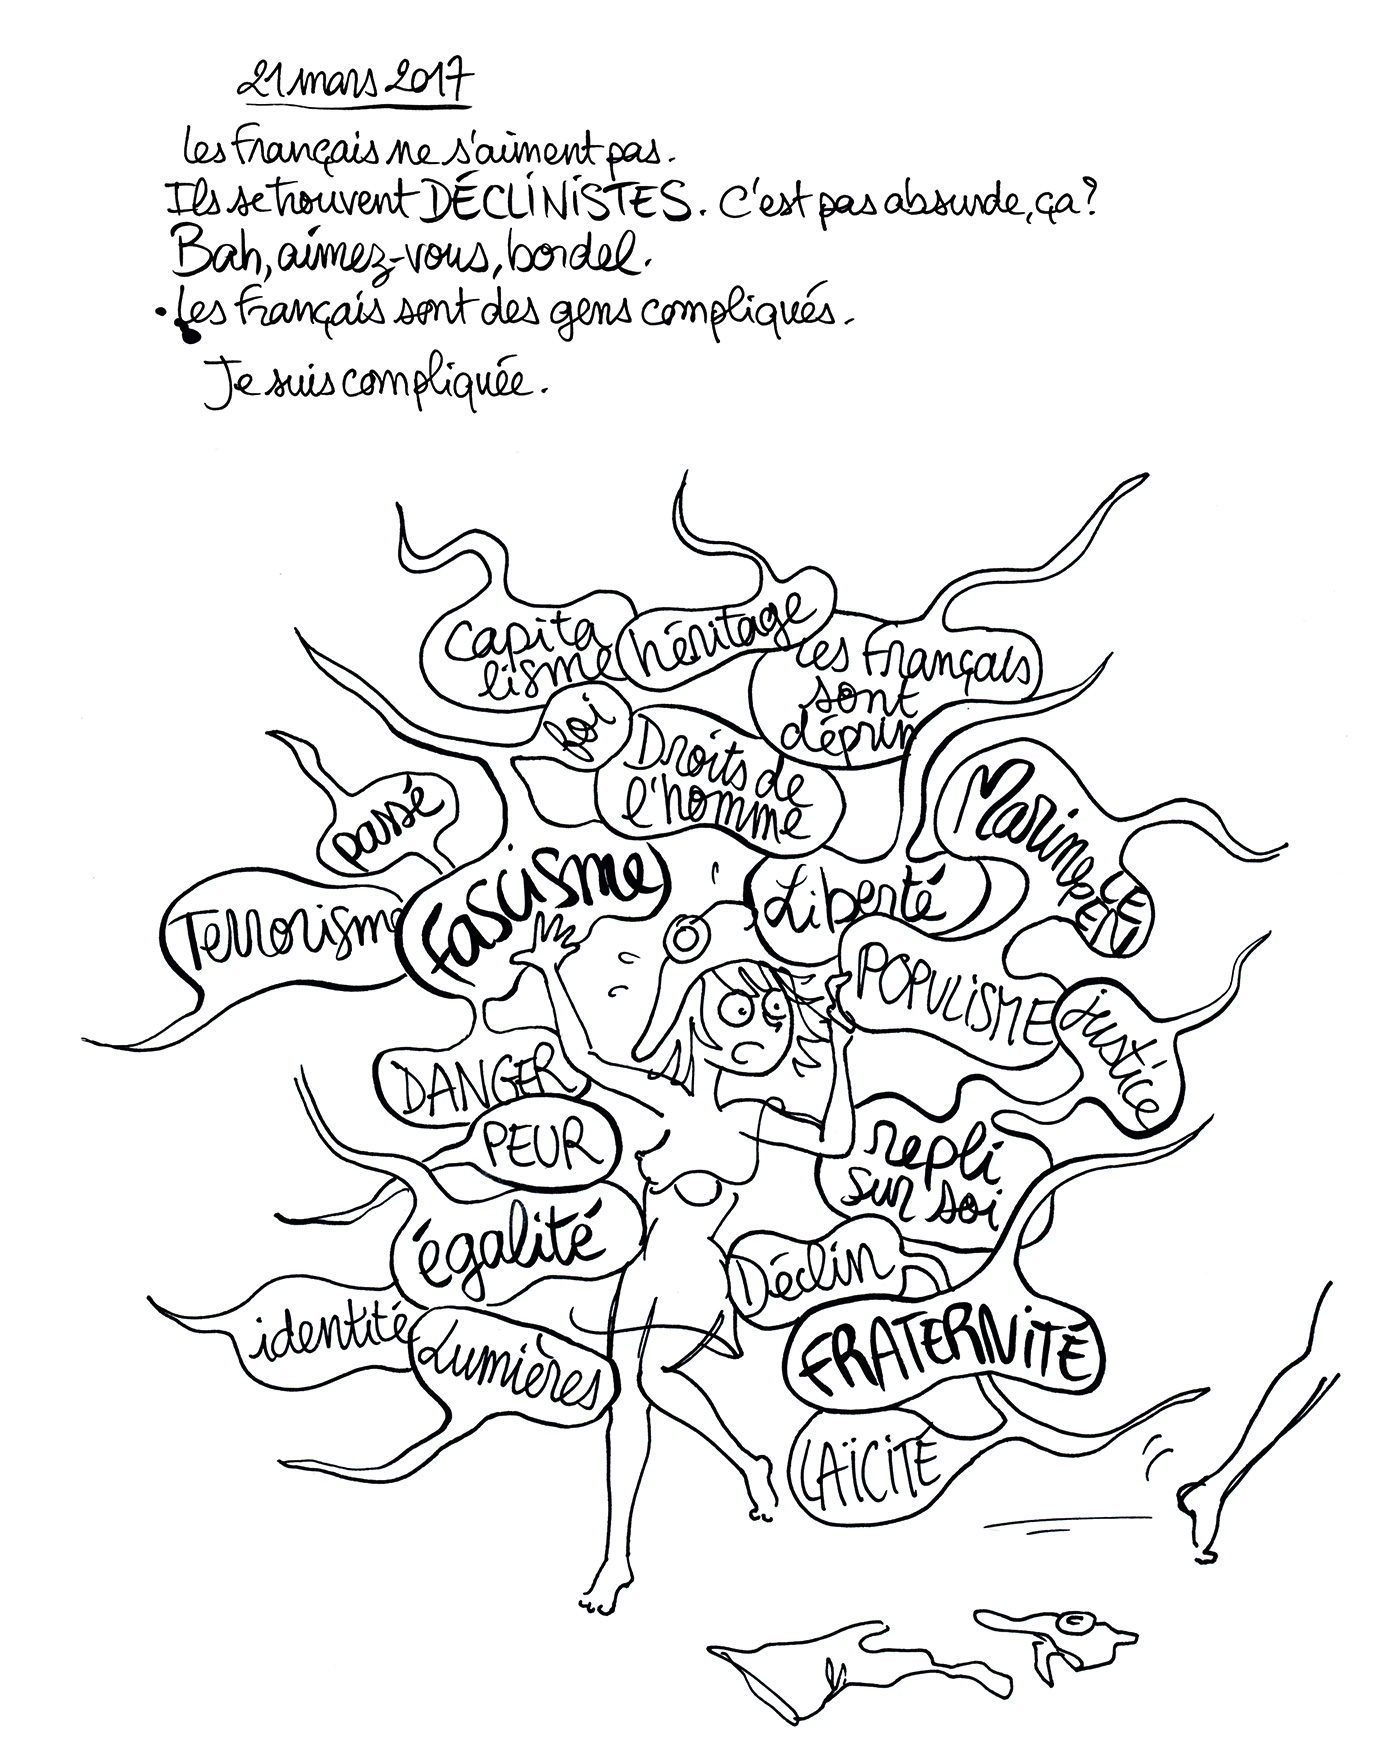 21 mars 2017
Les Français ne s'aiment pas.
Ils se trouvent DÉCLINISTES. C'est pas absurde, ça?
Bah, aimez-vous, bordel.
• Les Français sont des gens compliqués.
Je suis compliquée.
capita
lisme
héritage
les Français
sont
déprim
foi
Droits de
l'homme
passé
Marine
LE
PEN
Fascisme
Terrorisme
Liberté
POPULISME
justice
DANGER
PEUR
repli
sur soi
égalité
Déclin
identité
Lumières
FRATERNITÉ
LAÏCITÉ